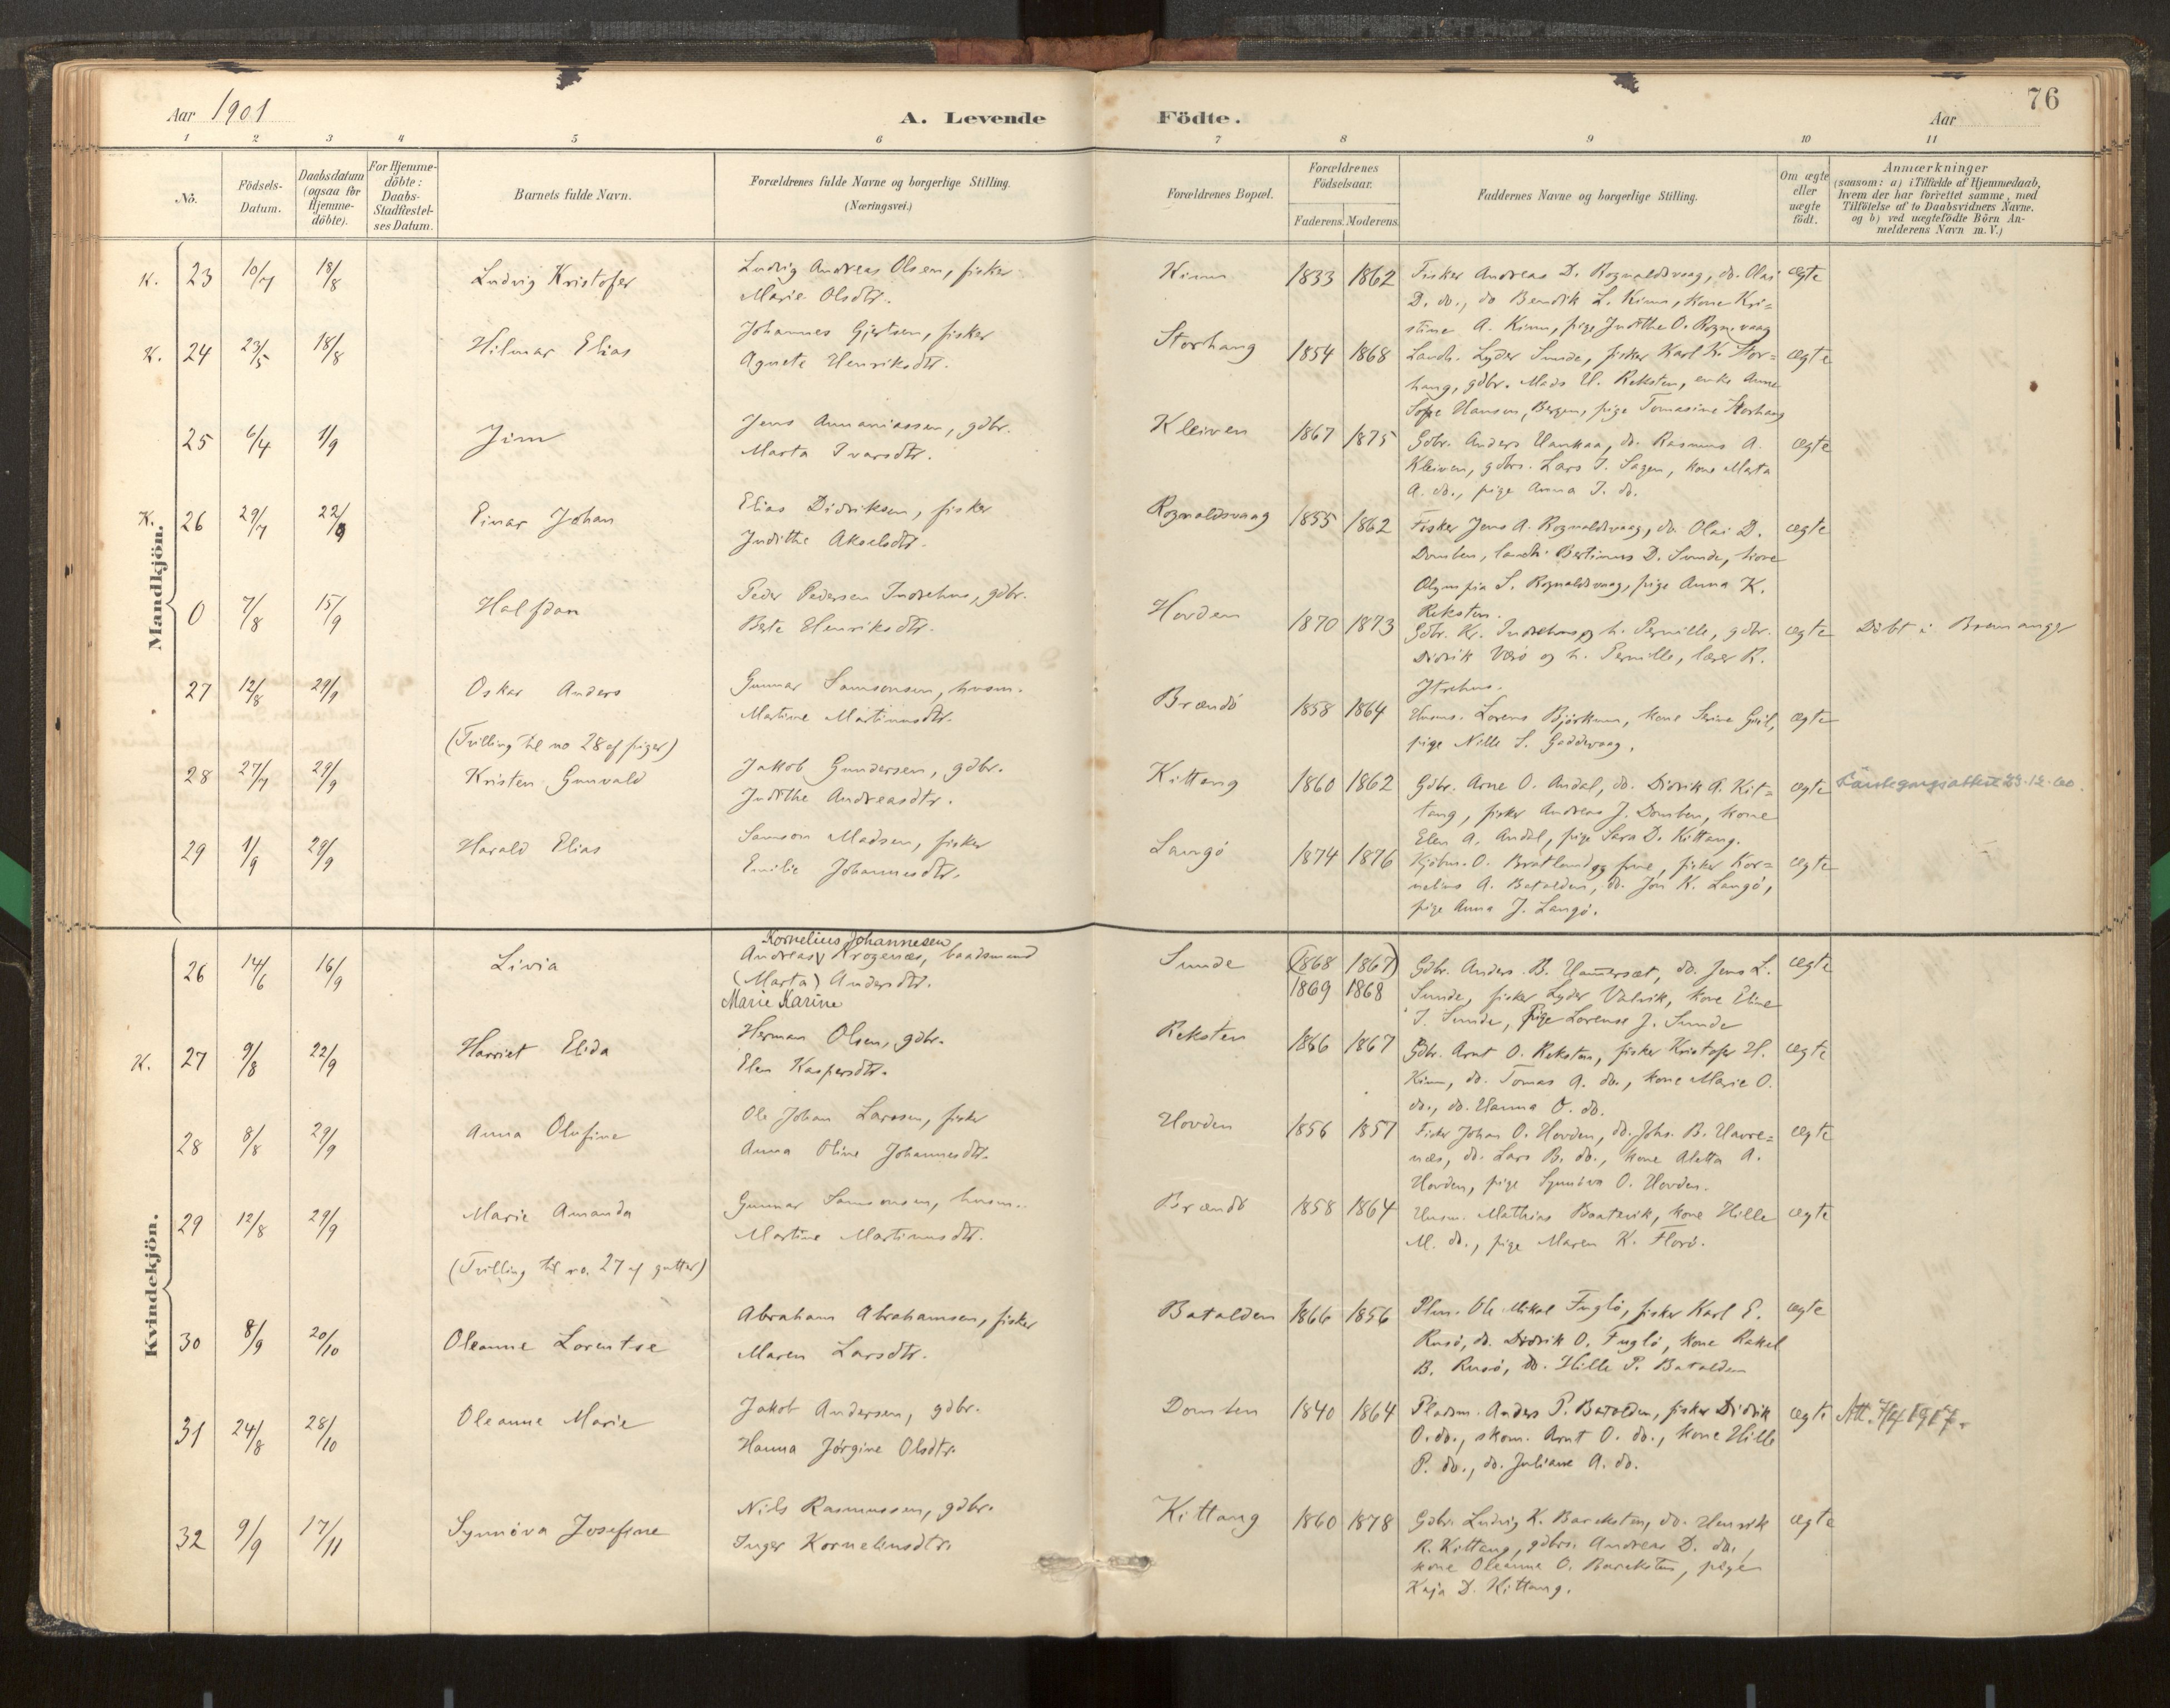 76
Aar 1901
A. Levende Födte.
Aar
1 2 3 4 5 6 7 8 9 10 11
No.
Födsels-
Datum.
Daabsdatum
(ogsaa for
Hjemme-
döbte).
For Hjemme-
döbte:
Daabs-
Stadfæstel-
ses Datum.
Barnets fulde Navn.
Forældrenes fulde Navne og borgerlige Stilling.
(Næringsvei.)
Forældrenes Bopæl.
Forældrenes
Födselsaar.
Faderens. Moderens.
Faddernes Navne og borgerlige Stilling.
Om ægte
eller
uægte
født.
Anmærkninger
(saasom: a) i Tilfælde af Hjemmedaab,
hvem der har forrettet samme, med
Tilföielse af to Daabsvidners Navne.
og b) ved uægtefödte Börn An-
melderens Navn m. V.)
Mandkjön.
K. 23 10/7 18/8 Ludvig Kristofer
Ludvig Andreas Olsen, fisker
Marie Olsdtr.
Kinn 1833 1862
Fisker Andreas D. Rognaldsvaag, do. Olai
D. do., do Bendik L. Kinn, kone Kri-
stine A. Kinn, pige Judithe O. Rogn.vaag
ægte
K. 24 23/5 18/8 Hilmar Elias
Johannes Gjertsen, fisker
Agnete Henriksdtr.
Storhaug 1854 1868
Landh. Lyder Sunde, fisker Karl K. Stor-
haug, gdbr. Mads H. Reksten, enke Anne
Sofie Hansen, Bergen, pige Tomasine Storhaug
ægte
25 6/4 1/9 Jim
Jens Annaniassen, gdbr.
Marta Ivarsdtr.
Kleiven 1867 1875
Gdbr. Anders Haukaa, do. Rasmus A.
Kleiven, gdbrs. Lars J. Sagen, kone Marta
A. do., pige Anna J. do.
ægte
K. 26 29/7 22/9 Einar Johan
Elias Didriksen, fisker
Judithe Akselsdtr.
Rognaldsvaag 1855 1862
Fisker Jens A. Rognaldsvaag, do. Olai D.
Domben, landh. Bertinus D. Sunde, kone
Olympia S. Rognaldsvaag, pige Anna K.
Reksten.
ægte
0 7/8 15/9 Halfdan
Peder Pedersen Indrehus, gdbr.
Berte Henriksdtr.
Hovden 1870 1873
Gdbr. Kr. Indrehus og h. Pernille, gdbr.
Didrik Værö og h. Pernille, lærer R.
Ytrehus.
ægte
Döbt i Bremanger
27 12/8 29/9 Oskar Anders
(Tvilling til no 28 af piger)
Gunnar Samsonsen, husm.
Martine Martinusdtr.
Brændö 1858 1864
Husm. Lorens Björkum, kone Serine
pige Nille S. Goddevaag.
ægte
28 27/7 29/9 Kristen Gunvald
Jakob Gundersen, gdbr.
Judithe Andreasdtr.
Kittang 1860 1862
Gdbr. Arne O. Andal, do. Didrik A. Kit-
tang, fisker Andreas J. Domben, kone
Elen A. Andal, pige Sara D. Kittang.
ægte
29 1/9 29/9 Harald Elias
Samson Madsen, fisker
Emilie Johannesdtr.
Langö 1874 1876
Kjöbm. O. Bratland og frue, fisker Kor-
nelius A. Batalden, do. Jon K. Langö,
pige Anna J. Langö.
ægte
Kvindekjön.
26 14/6 16/9 Livia
Kornelius Johannesen
Andreas Krogenæs, baadsmand
(Marta) Andersdtr.
Marie Karine
Sunde (1868 1867)
1869 1868
Gdbr. Anders B. Hammersæt, do. Jens L.
Sunde, fisker Lyder Valvik, kone Eline
J. Sunde, Pige Lorense J. Sunde
ægte
K. 27 9/8 22/9 Harriet Elida
Herman Olsen, gdbr.
Elen Kaspersdtr.
Reksten 1866 1867
Gdbr. Arnt O. Reksten, fisker Kristofer H.
Kinn, do. Tomas A. do., kone Marie O.
do., do. Hanna O. do.
ægte
28 8/8 29/9 Anna Olufine
Ole Johan Larssen, fisker
Anna Oline Johannesdtr.
Hovden 1856 1857
Fisker Johan O. Hovden, do. Johs. B. Havre-
næs, do. Lars B. do., kone Aletta A.
Hovden, pige Synnöva O. Hovden.
ægte
29 12/8 29/9 Marie Amanda
(Tvilling til no. 27 af gutter)
Gunnar Samsonsen, husm.
Martine Martinusdtr.
Brændö 1858 1864
Husm. Mathias Baatevik, kone Hille
M. do., pige Maren K. Florö.
ægte
30 8/9 20/10 Oleanne Lorentse
Abraham Abrahamsen, fisker
Maren Larsdtr.
Batalden 1866 1856
Plm. Ole Mikal Fuglö, fisker Karl E.
Rusö, do. Didrik O. Fuglö, kone Rakel
B. Rusö, do. Hille P. Batalden
ægte
31 24/8 28/10 Oleanne Marie
Jakob Andersen, gdbr.
Hanna Jörgine Olsdtr.
Domben 1840 1864
Pladsm. Anders P. Batalden, fisker Didrik
O. do., skom. Arnt O. do., kone Hille
P. do., do. Juliane A. do.
ægte
Att. 7/4 1917.
32 9/9 17/11 Synnöva Josefine
Nils Rasmussen, gdbr.
Inger Korneliusdtr.
Kittang 1860 1878
Gdbr. Ludvig K. Bareksten, do. Henrik
R. Kittang, gdbrs. Andreas D. do.,
kone Oleanne O. Bareksten, pige
Kaja D. Kittang.
ægte